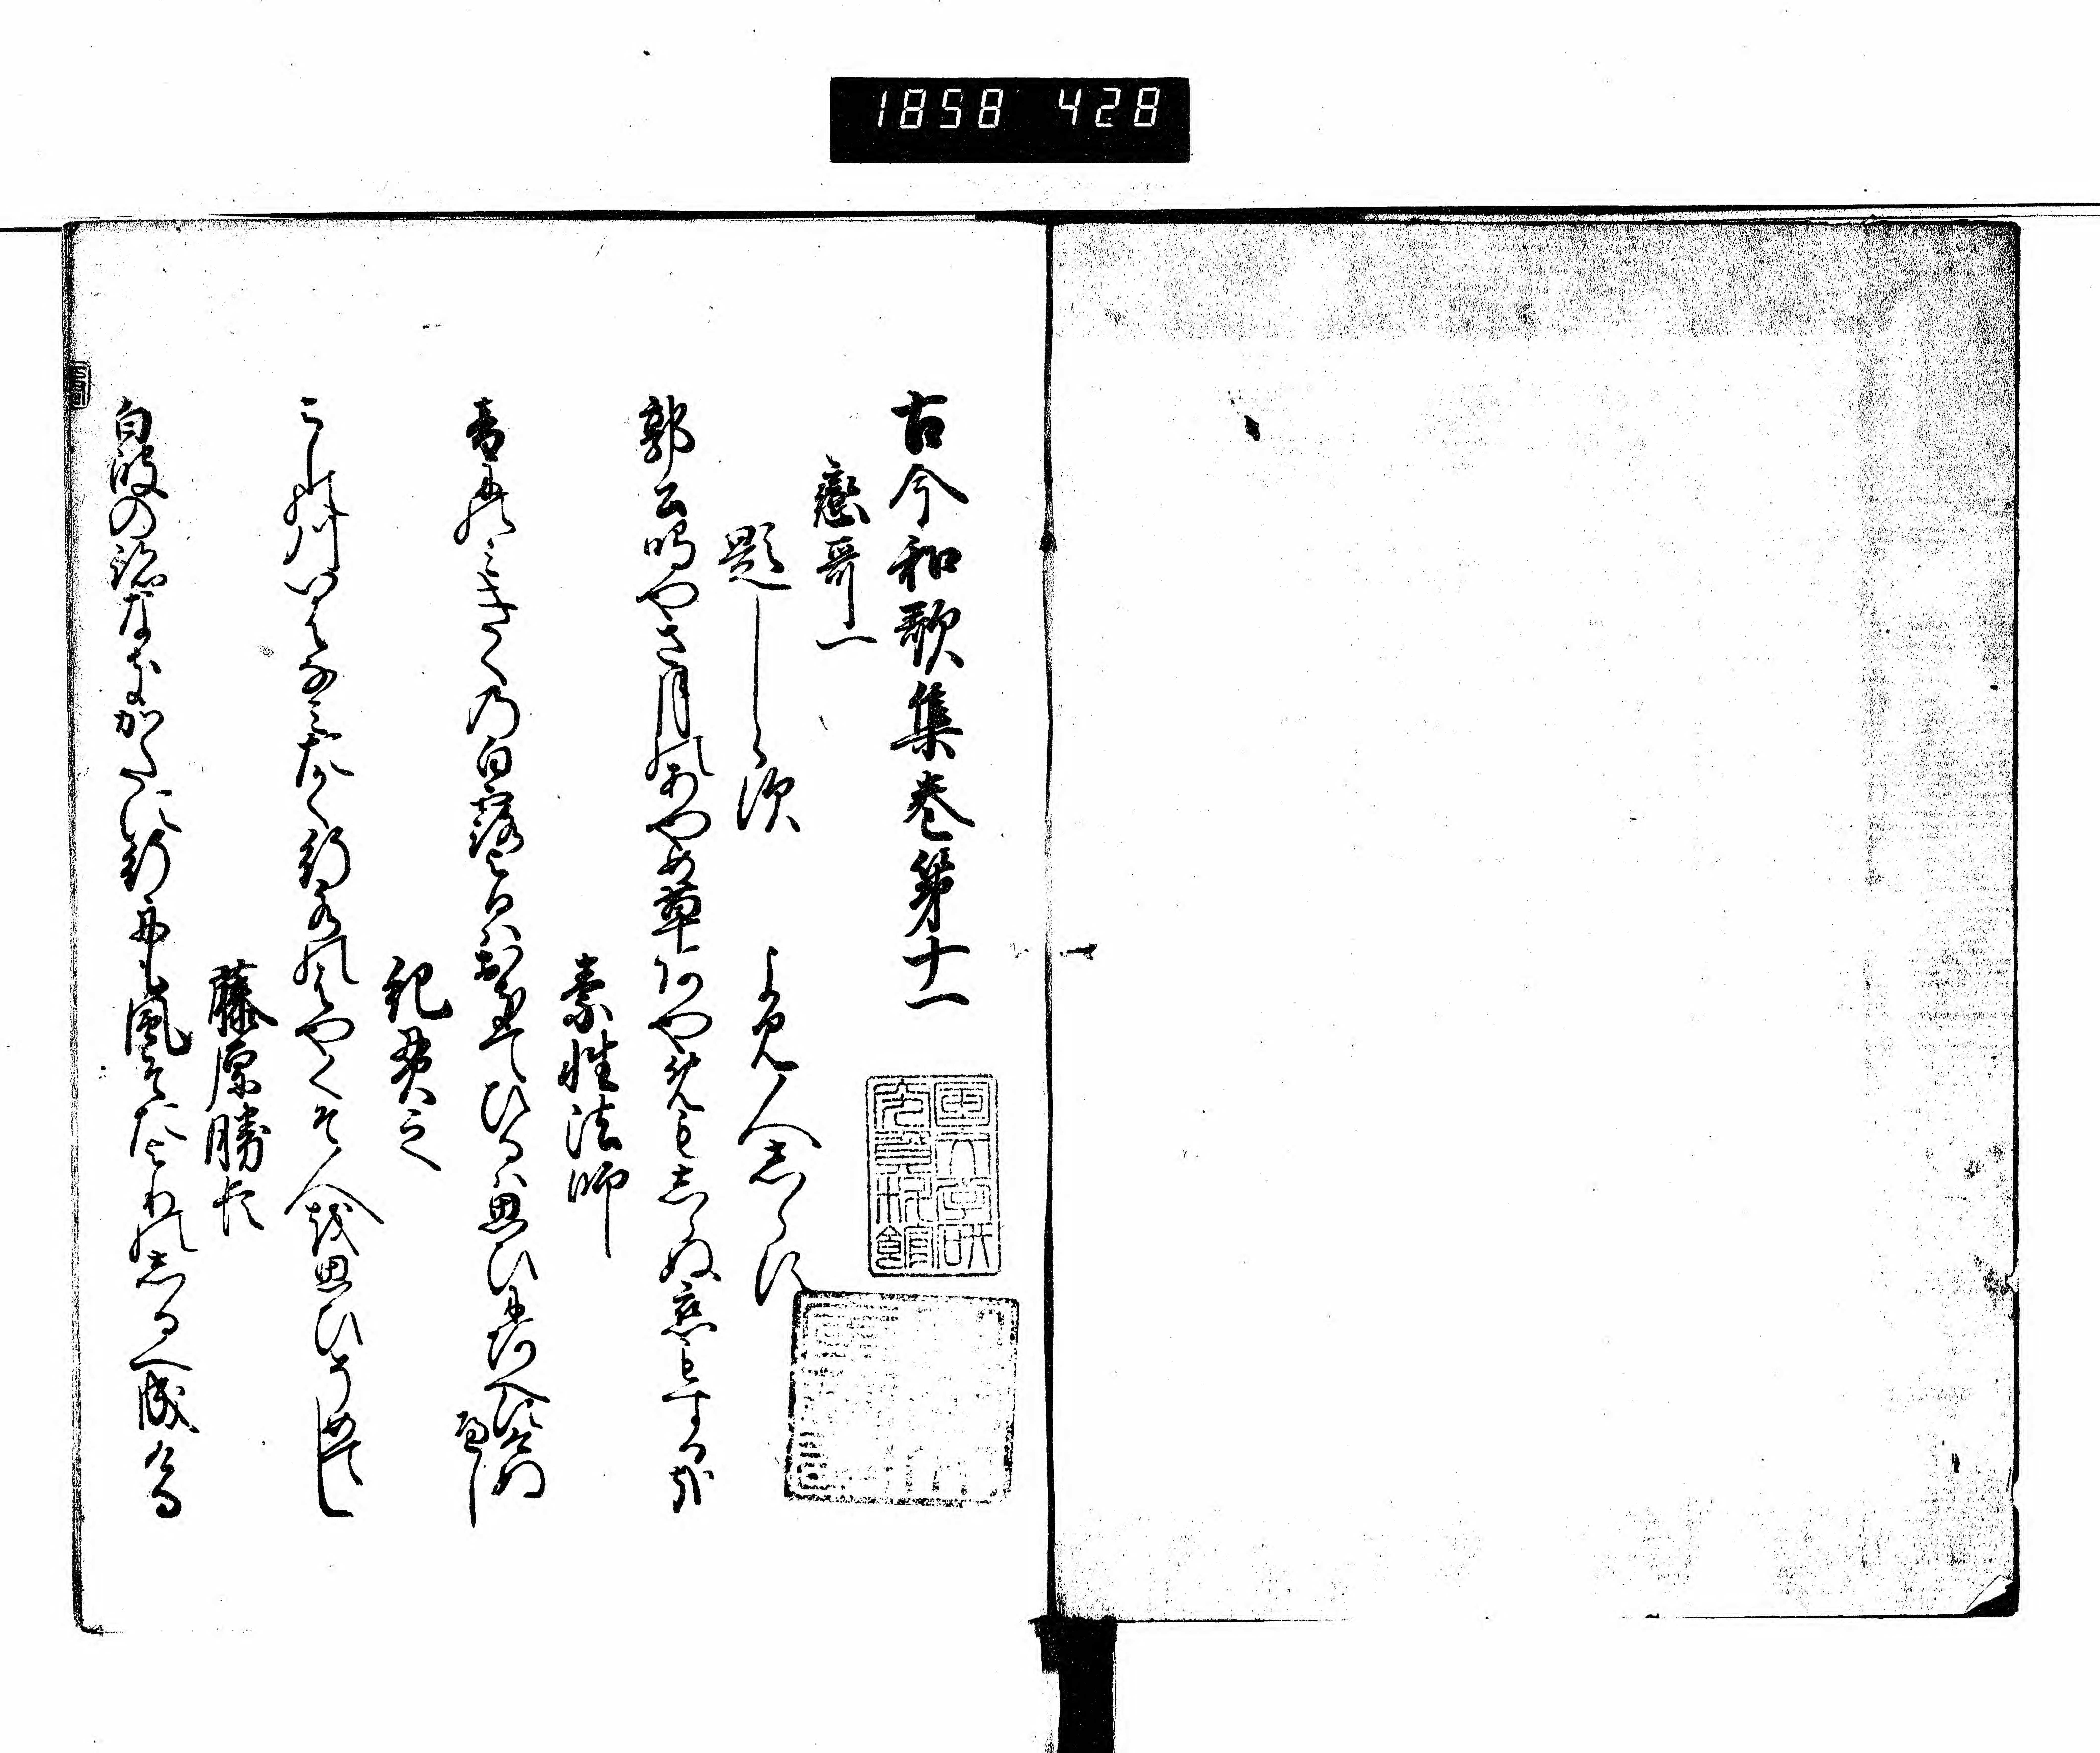 1858 428
古今和歌集巻第十一
戀哥一
題しらす
よみ人しらす
郭公鳴やさ月のあやめ草あやめもしらぬ恋もする哉
素性法師
音にのみきくの白露よるはおきてひるは思ひにあへすけぬ
へし
紀貫之
よしの川いはなみたかく行水のはやくそ人を思ひそめてし
藤原勝臣
白波の跡なきかたに行舟も風そたよりのしるへ成ける
国文学研究資料館